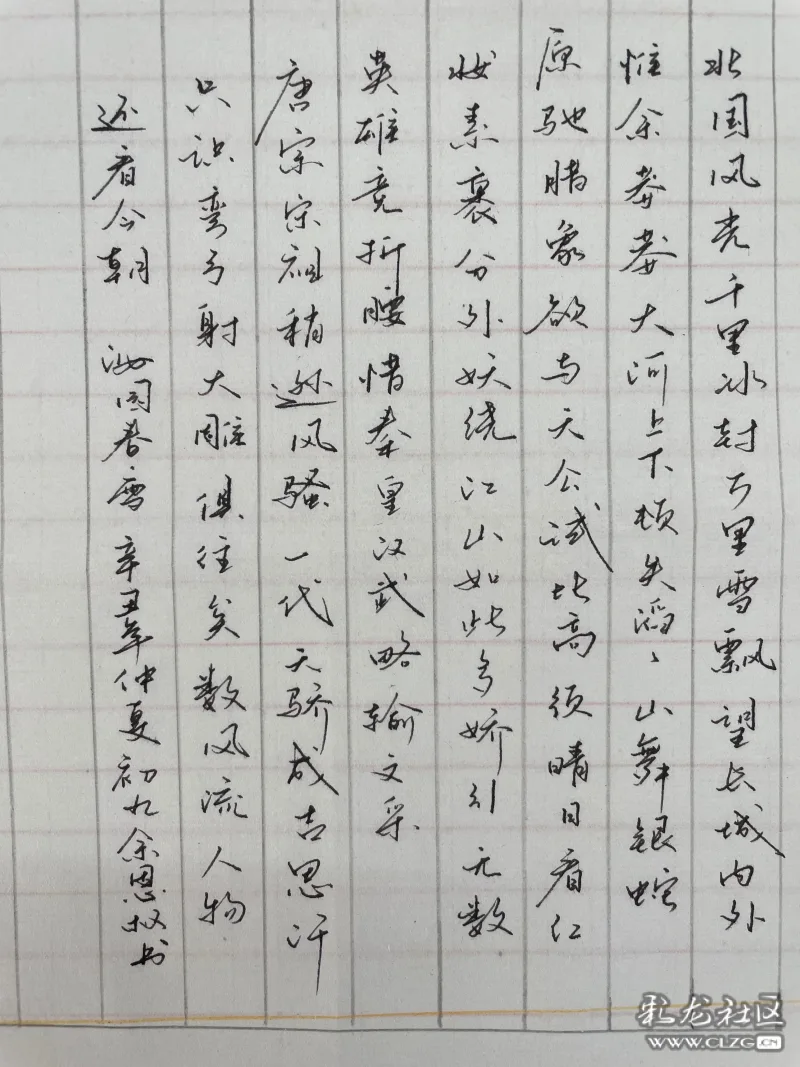 北国风光千里冰封万里雪飘望长城内外
惟余莽莽大河上下顿失滔々山舞银蛇
原驰腊象欲与天公试比高须晴日看红
妆素裹分外妖绕江山如此多娇引无数
英雄竞折腰惜秦皇汉武略输文采
唐宗宋祖稍逊风骚一代天骄成吉思汗
只识弯弓射大雕俱往矣数风流人物
还看今朝 沁园春雪 辛丑年仲夏初九余恩权书
彩龙社区
WWW.CLZG.CN